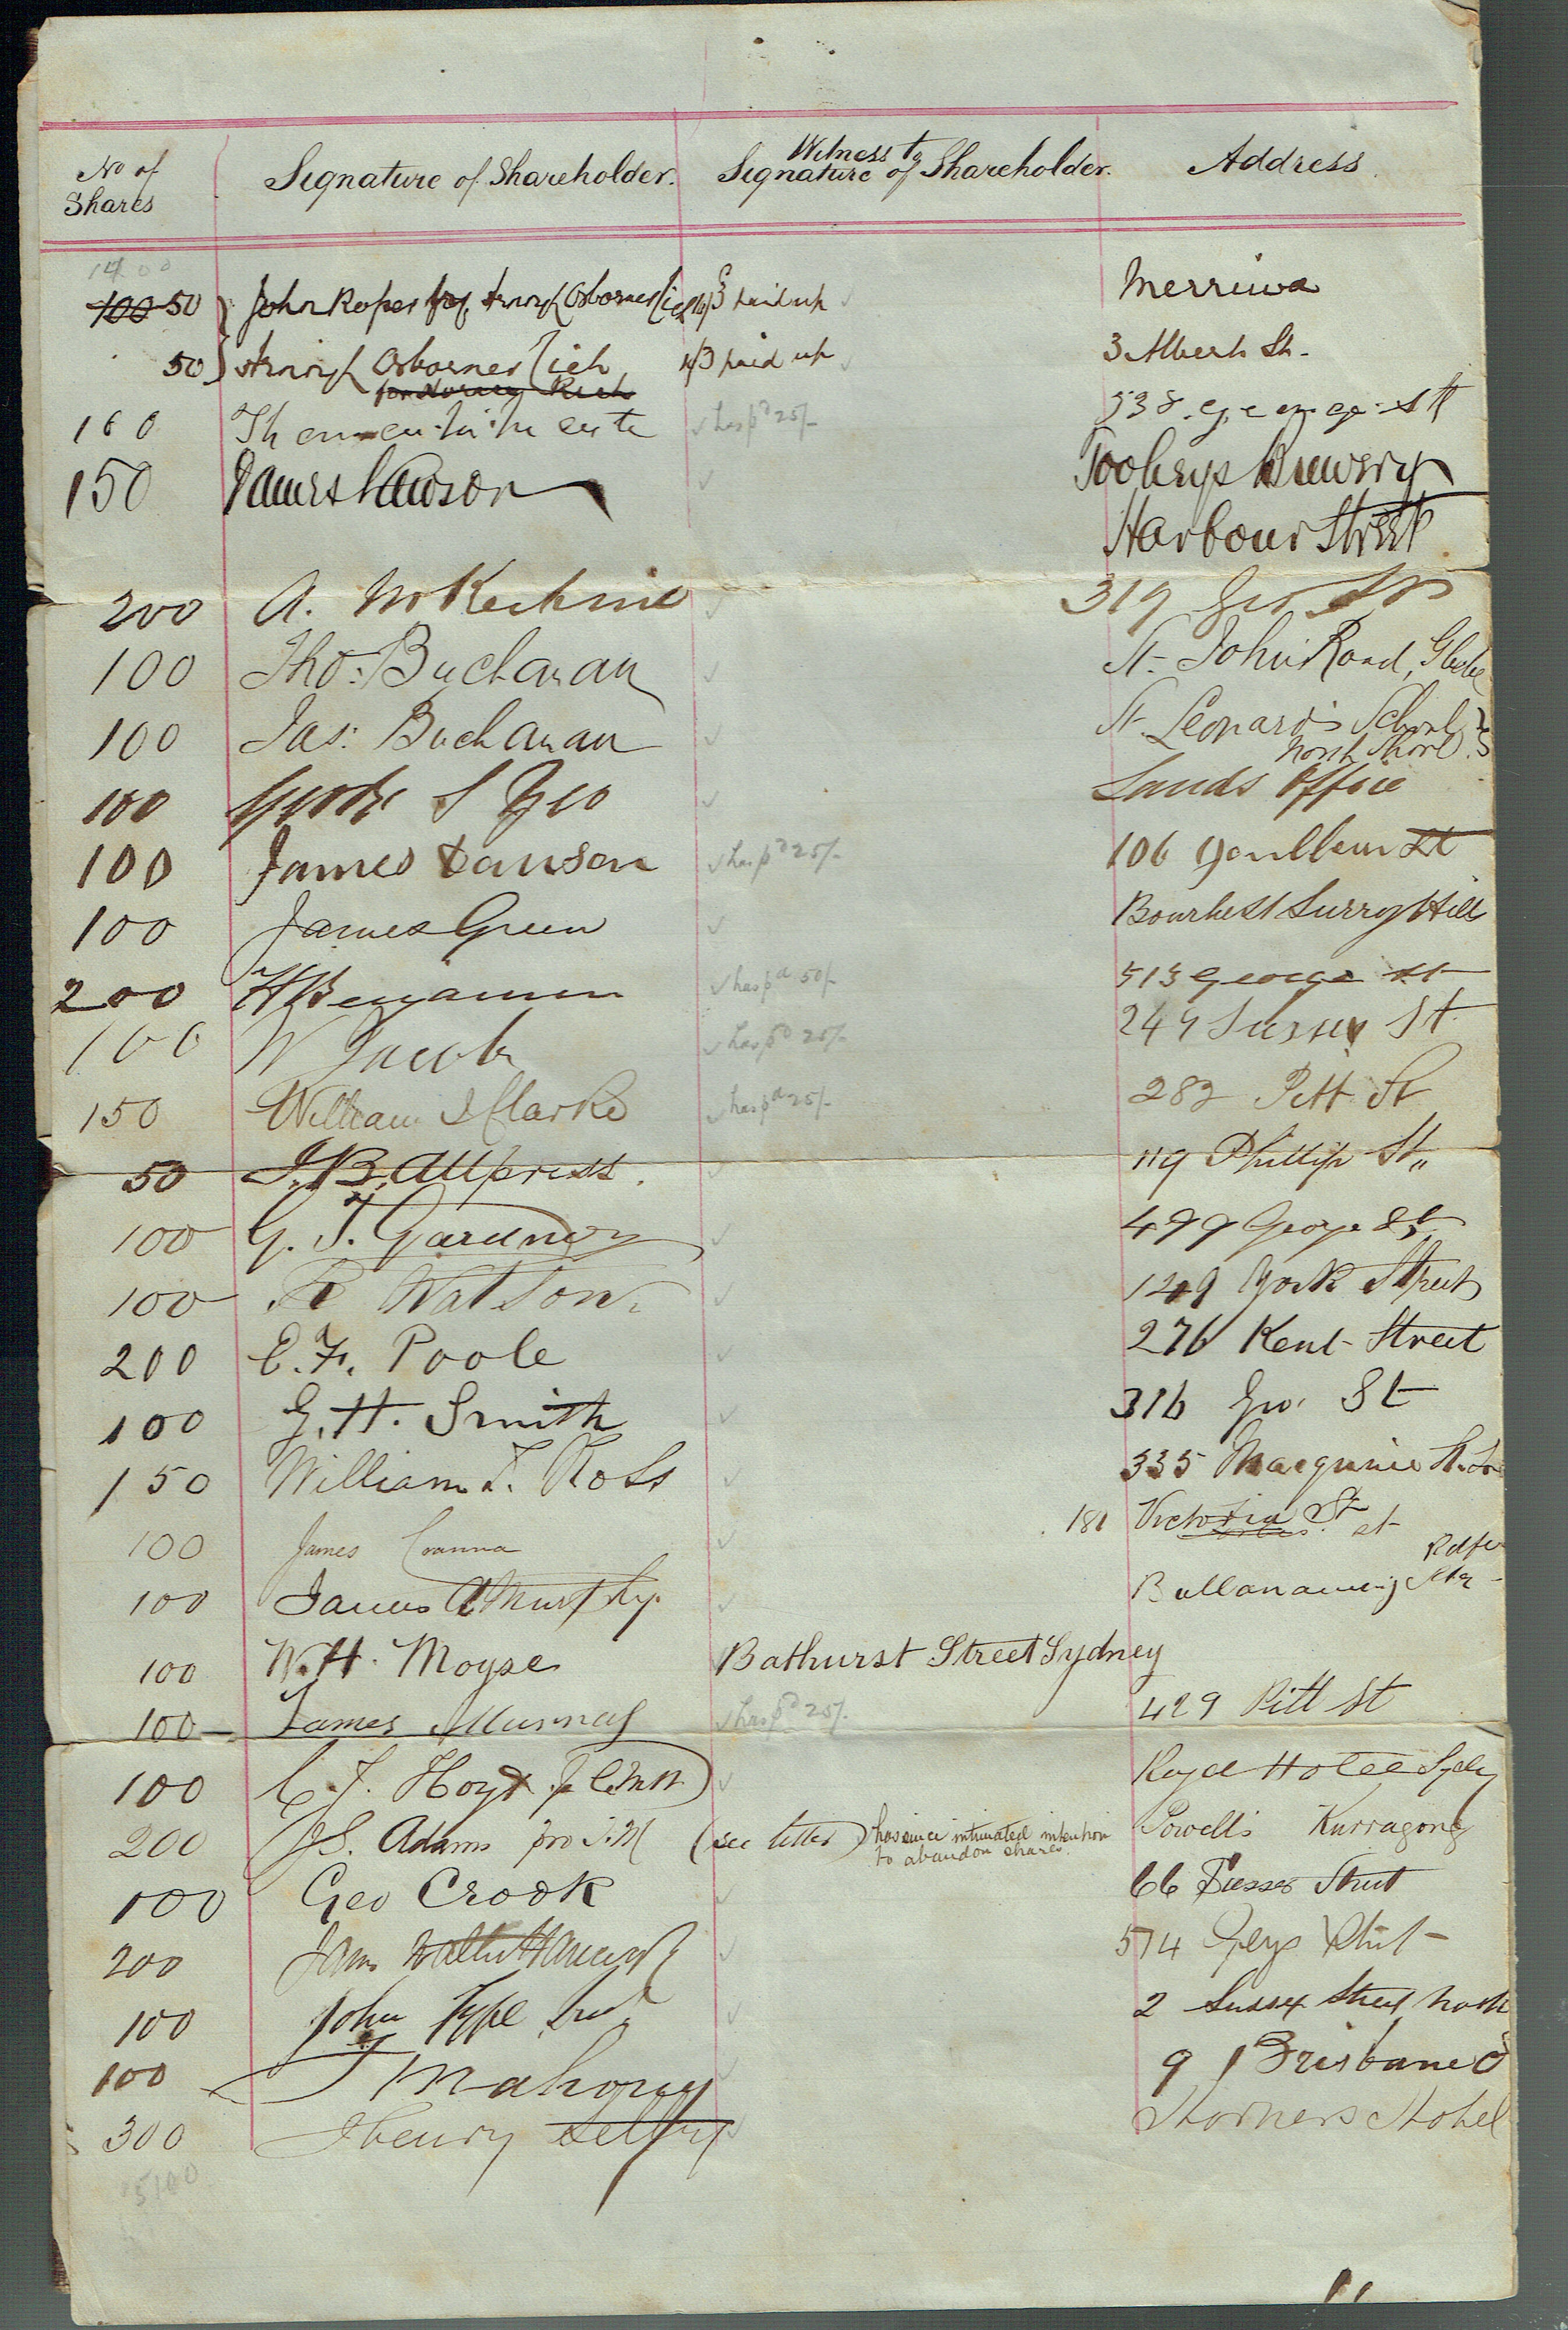 No of Shares
Signature of Shareholder.
Witness to
Signature of Shareholder.
Address
1400
100 50 John Roper Osborne Rich paid up Merriwa
50 Osborne Rich paid up 3 Albert St.
for Rich
100 has pd 25/- 538 George St
150 James Lawson Tooheys Brewery
Harbour Street
200 A. McKechnie 319 Geo St
100 Tho: Buchanan St. John's Road, Glebe
100 Jas: Buchanan St. Leonards School
North Shore
100 Lands Office
100 James Dawson has pd 25/- 106 Goulburn St
100 James Green Bourke St Surry Hills
200 H Benjamin has pd 50/- 513 George St
100 W Jacob has pd 25/- 249 Sussex St
150 William Clarke has pd 25/- 282 Pitt St
50 J.B. Allpress. 119 Phillip St
100 G. T. Gardner 499 George St
100 R Watson 149 York Street
200 E. F. Poole 276 Kent Street
100 G. H. Smith 316 Geo. St
150 William T. Ross 335 Macquarie St.
100 James 181 Victoria St
100 James A Murphy. Bullanaming St
100 W. H. Moyse Bathurst Street Sydney
100 James Murray has pd 25/- 429 Pitt St
100 C. J. Hoyt Royal Hotel Sydney
200 J S. Adams pro J.M (see letter) has since intimated intention Powell's Kurragong
to abandon shares.
100 Geo Crook 66 Sussex Street
200 Walter Hancock 574 George Street
100 John 2 Sussex Street North
100 J Mahony 9 Brisbane
300 Henry Selby Horners Hotel
5100